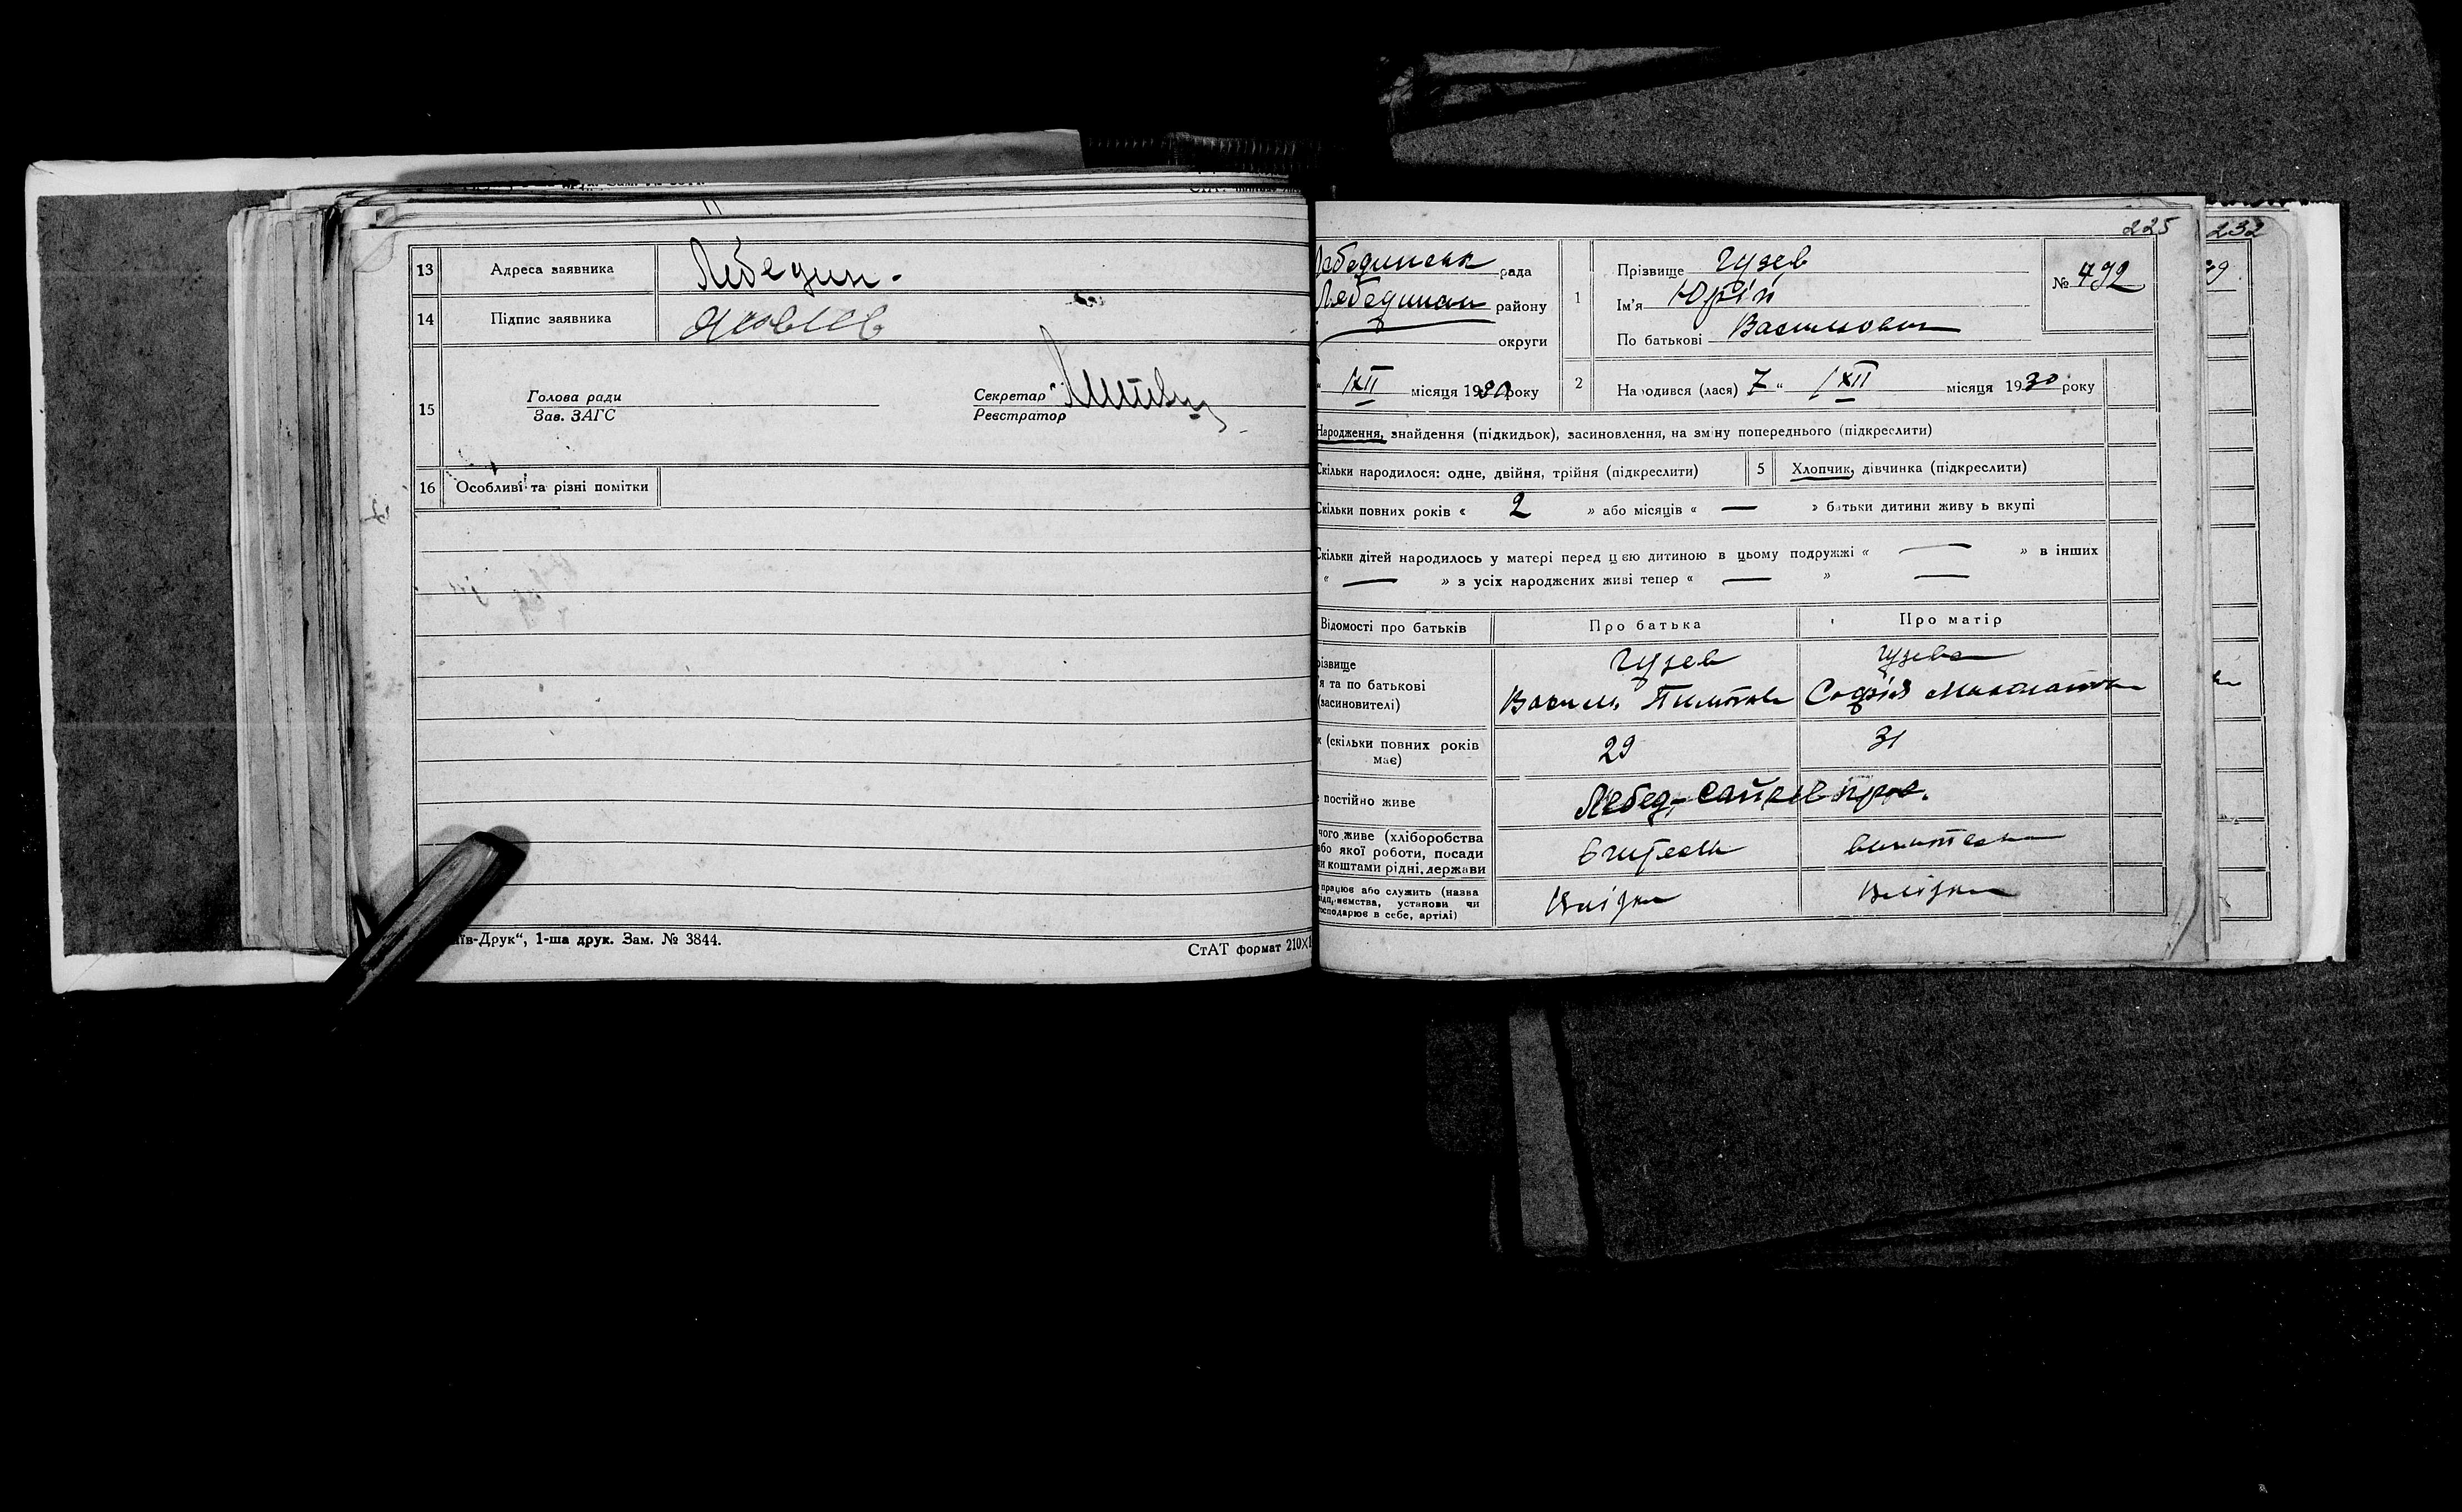 13 Адреса заявника Лебедин.
14 Підпис заявника
15 Голова ради
Зав. ЗАГС
Секретар
Реєстратор
16 Особливі та різні помітки
їв-Друк“, 1-ша друк. Зам. № 3844.
СтАТ формат 210×1
225
232
39
Лебединськ рада
району
округи
" XII місяця 1930 року
1 Прізвище Гузев
Ім'я Юрій
По батькові Васильович
№ 492
2 Народився (лася) 7 " XII місяця 1930 року
Народження, знайдення (підкидьок), засиновлення, на зміну попереднього (підкреслити)
Скільки народилося: одне, двійня, трійня (підкреслити)
5 Хлопчик, дівчинка (підкреслити)
Скільки повних років « 2 » або місяців « — » батьки дитини живуть вкупі
Скільки дітей народилось у матері перед цією дитиною в цьому подружжі « — » в інших
« — » з усіх народжених живі тепер « — » —
Відомості про батьків
Про батька
Про матір
різвище
я та по батькові
(засиновителі)
Гузев
Василь
Гузева
Софія
к (скільки повних років
має)
29
31
постійно живе
Лебед.
чого живе (хліборобства
або якої роботи, посади
ми коштами рідні, держави
працює або служить (назва
підприємства, установи чи
господарює в себе, артілі)